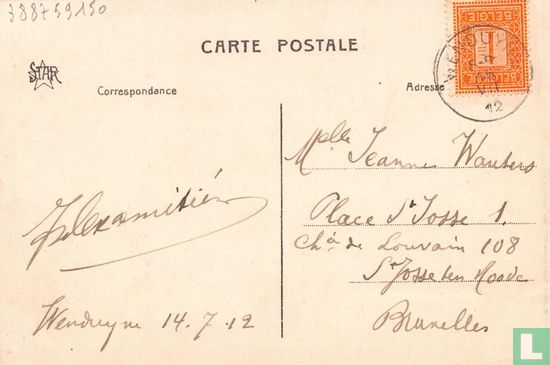 388759150
CARTE POSTALE
STAR
Correspondance
Adresse
BELGIE
1
12
Melle Jeanne Wauters
Place St Josse 1.
Chée de Louvain 108
St Josse ten Noode
Bruxelles
Wenduyne 14.7.12